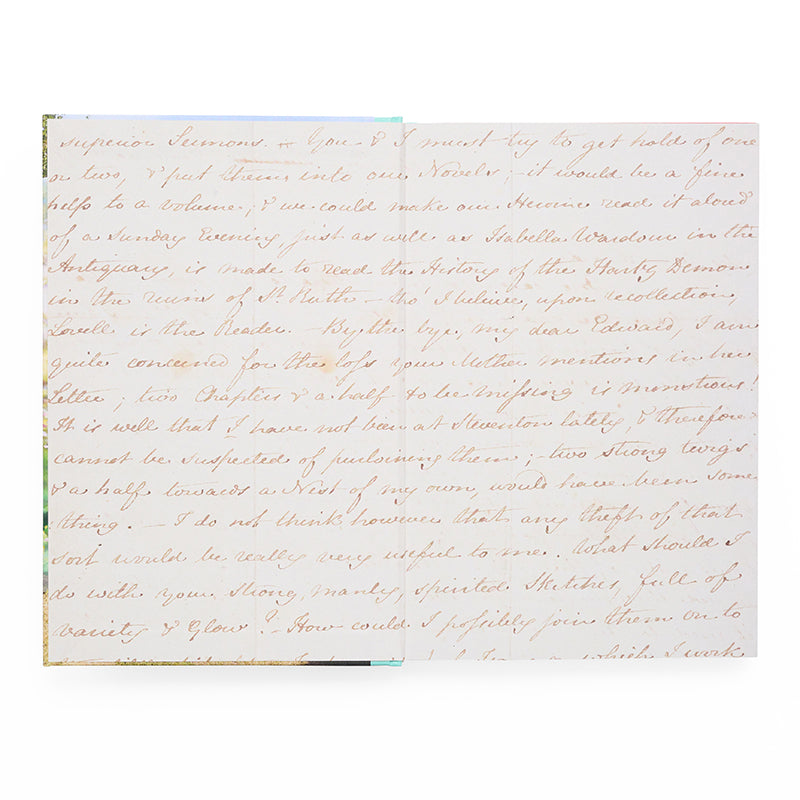 superior Sermons. — You & I must try to get hold of one
or two, & put them into our Novels; — it would be a fine
help to a volume; & we could make our Heroine read it aloud
of a Sunday Evening, just as well as Isabella Wardour in the
Antiquary, is made to read the History of the Hartz Demon
in the ruins of St. Ruth — tho' I believe, upon recollection,
Lovell is the Reader. — By the bye, my dear Edward, I am
quite concerned for the loss your Mother mentions in her
Letter; two Chapters & a half to be missing is monstrous!
It is well that I have not been at Steventon lately, & therefore
cannot be suspected of purloining them; — two strong twigs
& a half towards a Nest of my own, would have been some
thing. — I do not think however that any theft of that
sort would be really very useful to me. What should I
do with your strong, manly, spirited Sketches, full of
Variety & Glow? — How could I possibly join them on to
which I work